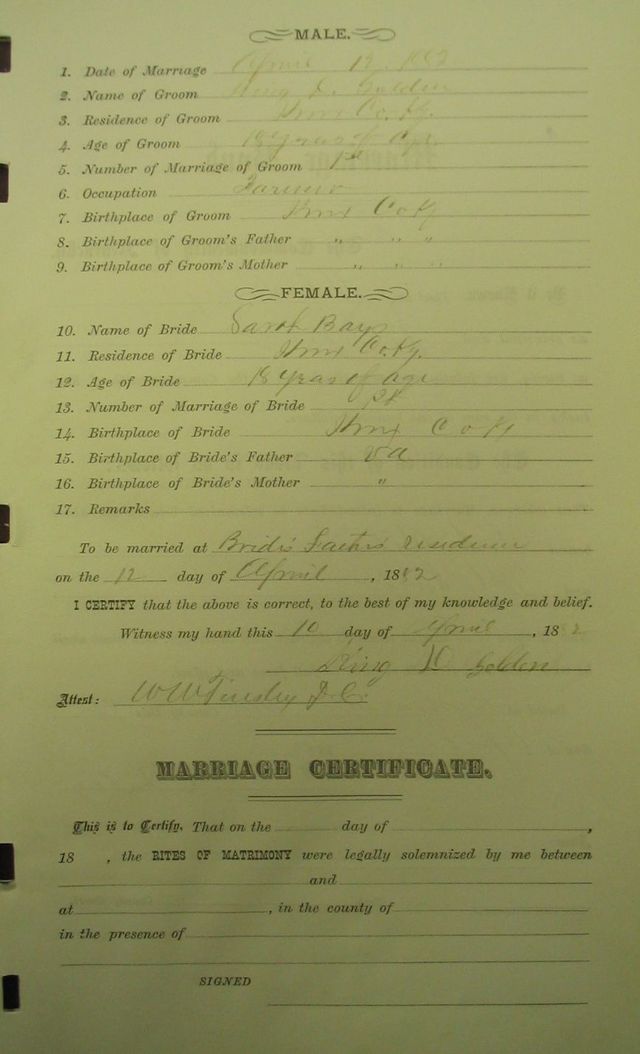 MALE.
1. Date of Marriage April 12 1882
2. Name of Groom King D. Golden
3. Residence of Groom Knox Co. Ky.
4. Age of Groom 18 years of age
5. Number of Marriage of Groom 1st
6. Occupation Farmer
7. Birthplace of Groom Knox Co Ky
8. Birthplace of Groom's Father " " "
9. Birthplace of Groom's Mother " " "
FEMALE.
10. Name of Bride Sarah Bays
11. Residence of Bride Knox Co. Ky.
12. Age of Bride 18 years of age
13. Number of Marriage of Bride 1st
14. Birthplace of Bride Knox Co Ky
15. Birthplace of Bride's Father Va
16. Birthplace of Bride's Mother "
17. Remarks
To be married at Brides Father's residence
on the 12 day of April, 1882
I CERTIFY that the above is correct, to the best of my knowledge and belief.
Witness my hand this 10 day of April, 1882
King D Golden
Attest: W W Tinsley D.C.
MARRIAGE CERTIFICATE.
This is to Certify, That on the day of ,
18 , the RITES OF MATRIMONY were legally solemnized by me between
and
at , in the county of
in the presence of
SIGNED